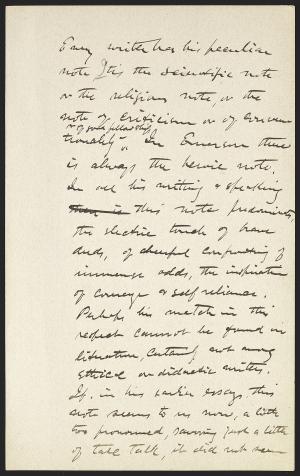 Every writer has his peculiar
note. It is the scientific note
or the religious note, or the
note of criticism or of conven
or of good fellowship
tionality. In Emerson there
is always the heroic note.
In all his writing & speaking
this note predominates,
the electric touch of brave
deeds, of cheerful confronting of
immense odds, the inspiration
of courage & self reliance.
Perhaps his match in this
respect cannot be found in
literature, certainly not among
ethical or didactic writers.
If, in his earlier essays, this
note seems to us now, a little
too pronounced, savoring just a little
of tall talk, it did not seem